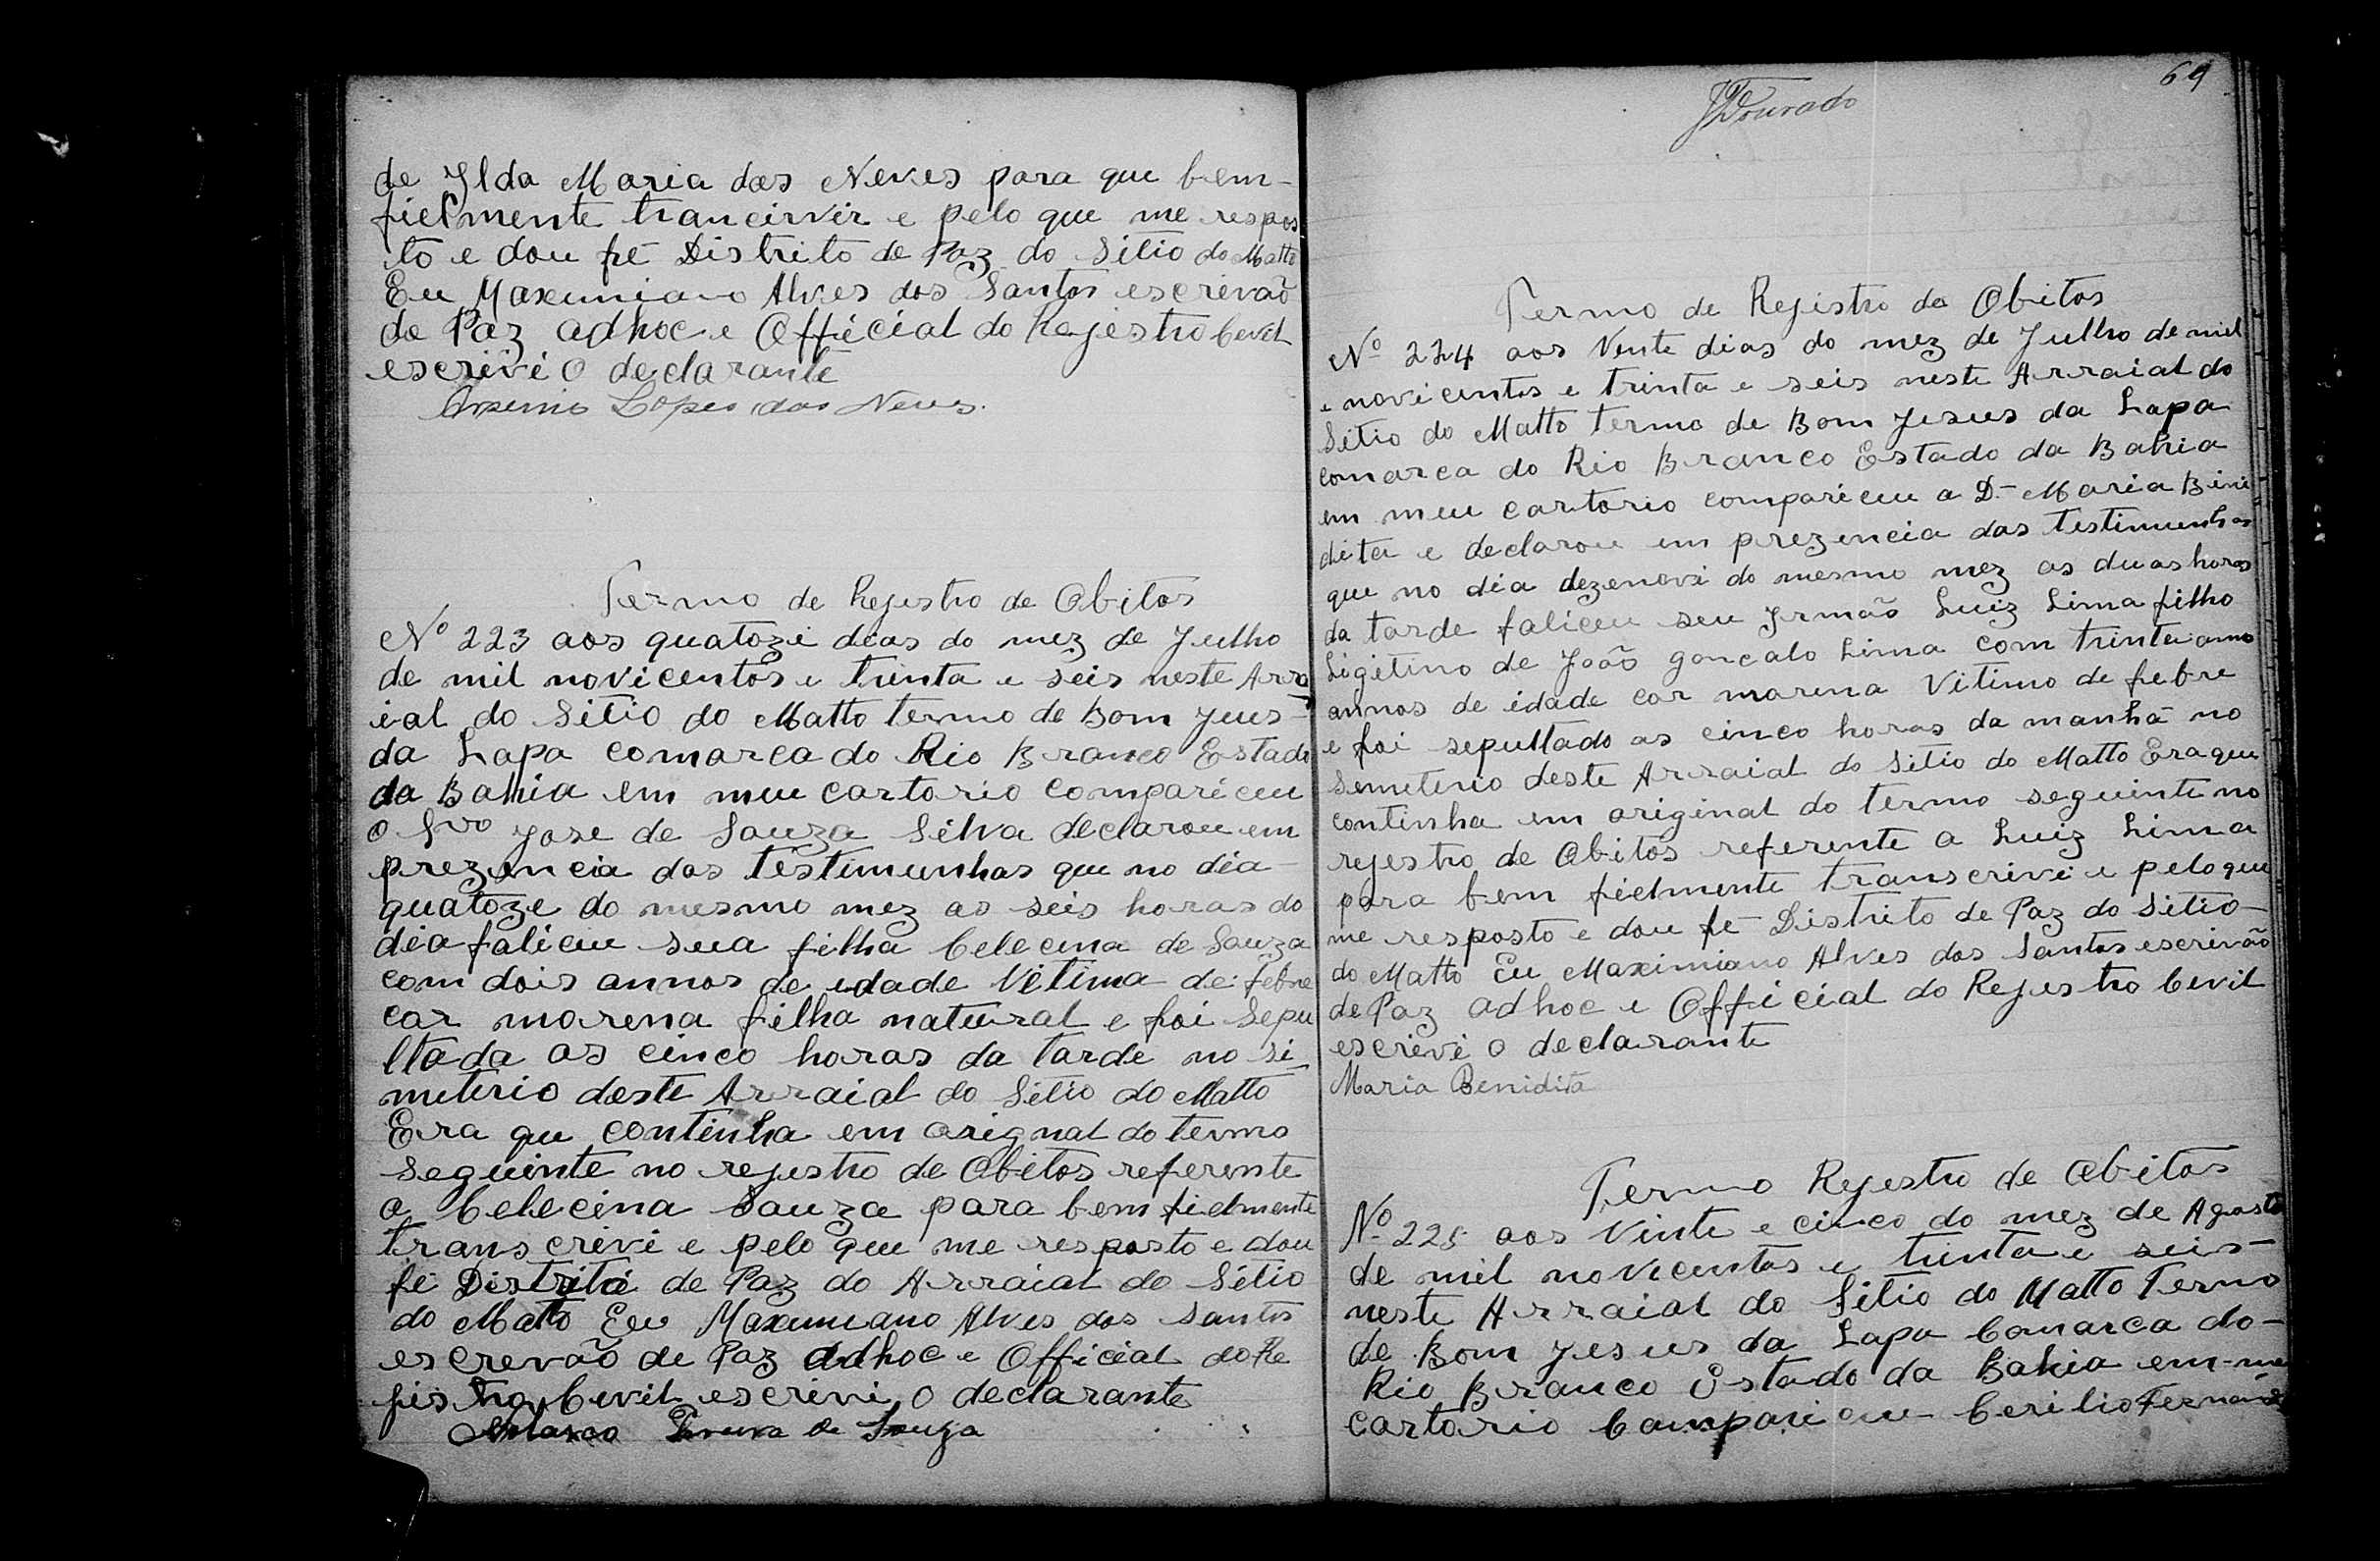 de Ylda Maria das Neves para que bem-
fielmente trancirvir e pelo que me respos
to e dou fé Distrito de Paz do Sitio do Matto
Eu Maxumiano Alves dos Santos escrivaõ
de Paz adhoc e Official do Rejestro Cevil
escrivi O declarante
Arsenio Lopes das Neves.
Termo de Rejestro de Obitos
Nº 223 aos quatoze dias do mez de Julho
de mil novicentos e trinta e seis neste Arra
ial do Sitio do Matto termo de Bom Jesus-
da Lapa comarca do Rio Branco Estado
da Bahia em meu cartorio compariceu
o Snro Jose de Souza Silva declarou em
prezencia das testimunhas que no dia-
quatoze do mesmo mez as seis horas do
dia faliceu sua filha Celecina de Souza
com dois annos de idade Vitima de febre
cor morena filha natural e foi Sepu
ltada as cinco horas da tarde no si
miterio deste Arraial do Sitio do Matto
Era que continha em orignal do termo
seguinte no rejestro de Obitos referente
a Celecina Souza para bem fielmente
transcrivi e pelo que me resposto e dou
fé Distrito de Paz do Arraial do Sitio
do Matto Eu Maxumiano Alves dos Santos
escrevaõ de Paz adhoc e Official do Re
jistro Cevil escrivi O declarante
de Souza
69
JDourado
Termo de Rejistro de Obitos
Nº 224 aos Vente dias do mez de Julho de mil
e novicentos e trinta e seis neste Arraial do
Sitio do Matto termo de Bom Jesus da Lapa
comarca do Rio Branco Estado da Bahia
em meu cartorio compariceu a D.- Maria Bini
dita e declarou em prezencia das testimunhas
que no dia dezenovi do mesmo mez as duas horas
da tarde faliceu seu Jrmaõ Luiz Lima filho
Ligitino de Joaõ goncalo Lima com trinta anno
annos de idade cor morena Vitimo de febre
e foi sepultado as cinco horas da manhã no
Semeterio deste Arraial do Sitio do Matto Era que
continha em original do termo seguinte no
rejestro de Obitos referente a Luiz Lima
para bem fielmente transcrivi e pelo que
me resposto e dou fé Distrito de Paz do Sitio-
do Matto Eu Maximiano Alves dos Santos escrivaõ
de Paz adhoc e Official do Rejestro Cevil
escrivi o declarante
Maria Benidita
Termo Rejestro de Obitos
Nº 225 aos Vinte e cinco do mez de Agosto
de mil novicentos e trinta e seis-
neste Arraial do Sitio do Matto Termo
de Bom Jesus da Lapa Comarca do-
Rio Branco Estado da Bahia em-me
cartorio Compariceu Cerilio Fernande